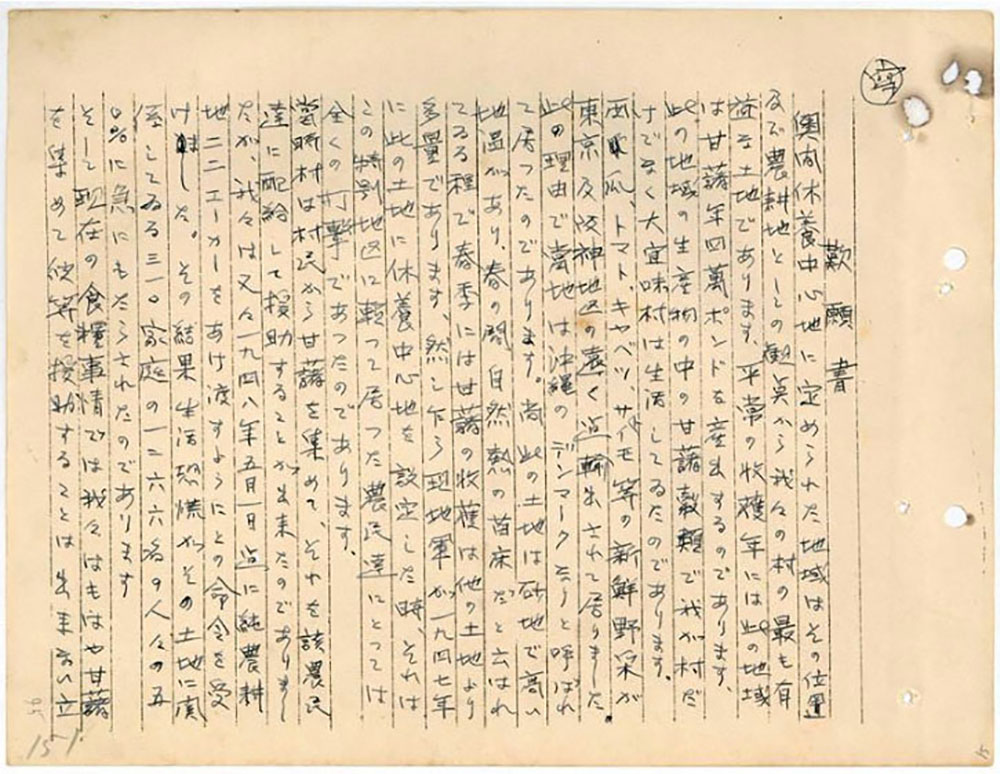 歎願書
奥間休養中心地に定められた地域はその位置
及で農耕地としての観点から我々の村の最も有
益な土地であります。平常の収穫年には此の地域
は甘藷年四萬ポンドを産出するのであります、
此の地域の生産物の中の甘藷穀類で我が村だ
けでなく大宜味村は生活してゐたのであります。
西瓜、トマト、キャベツ、サイモ等の新鮮野菜が
東京及阪神地区の遠く迄輸出されて居りました
此の理由で當地は沖縄のデンマークなりと呼ばれ
て居ったのであります。尚此の土地は砂地で高い
地温があり、春の間、自然熱の苗床だと云はれ
てゐる程で春季には甘藷の收穫は他の土地より
多量であります、然し乍ら現地軍が一九四七年
に此の土地に休養中心地を設定した時、それは
この特別地区に頼って居った農民達にとっては
全くの打撃であつたのであります。
當時村は村民から甘藷を集めて、それを該農民
達に配給して援助することが出来たのでありまし
たが、我々は又々一九四八年五月一日迄に純農耕
地二二エーカーをあけ渡すようにとの命令を受
けました。その結果生活恐慌がその土地に
住してゐる三一〇家庭の一二六六名の人々の五
〇%に急にもたらされたのであります
そして現在の食糧事情では我々はもはや甘藷
を集めて彼等を援助することは出来ない立